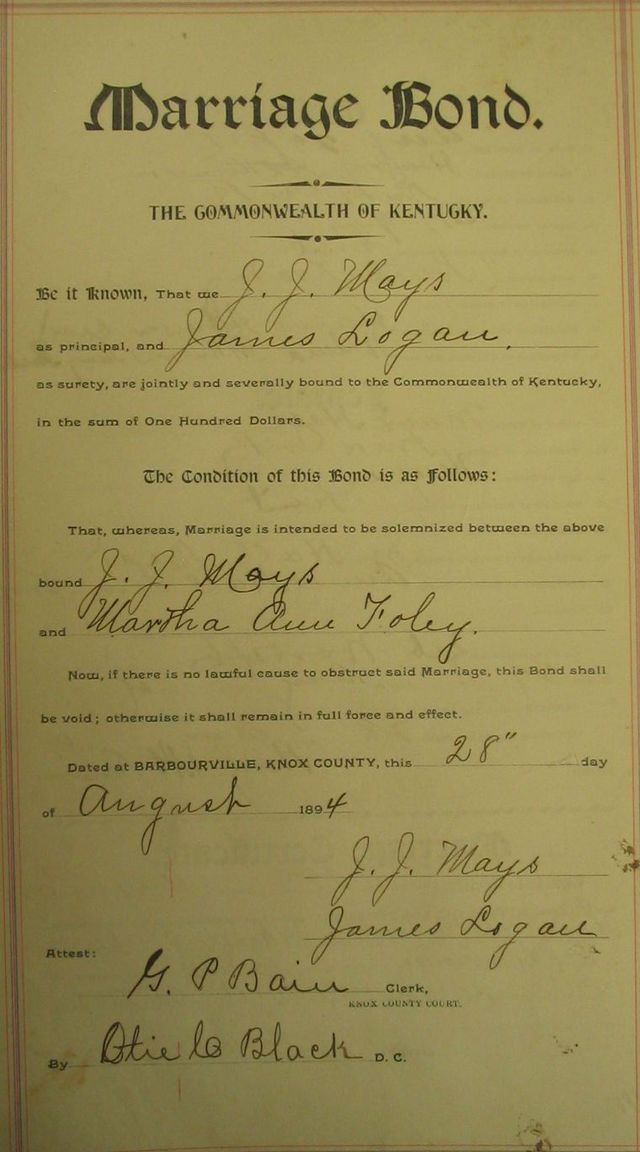 Marriage Bond.
THE COMMONWEALTH OF KENTUCKY.
Be it Known, That we J. J. Mays
as principal, and James Logan,
as surety, are jointly and severally bound to the Commonwealth of Kentucky,
in the sum of One Hundred Dollars.
The Condition of this Bond is as Follows:
That, whereas, Marriage is intended to be solemnized between the above
bound J. J. Mays
and Martha Ann Foley.
Now, if there is no lawful cause to obstruct said Marriage, this Bond shall
be void; otherwise it shall remain in full force and effect.
Dated at BARBOURVILLE, KNOX COUNTY, this 28" day
of August 1894
J. J. Mays
James Logan
Attest:
G. P Bain Clerk,
KNOX COUNTY COURT.
By Otie C Black D. C.